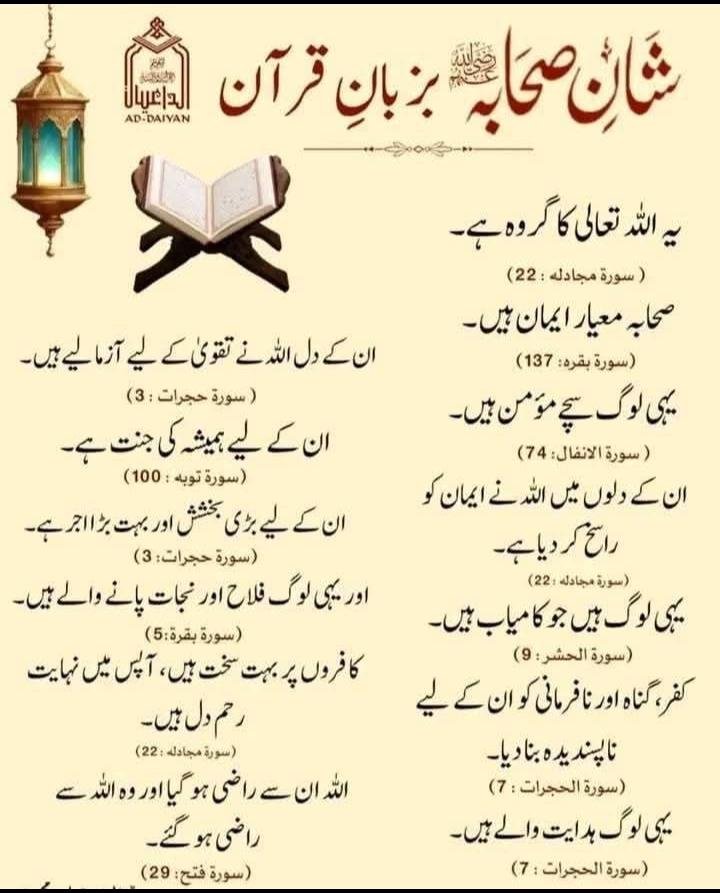 شانِ صحابہ رضی اللہ عنہم بزبانِ قرآن
AD-DAIYAN
یہ اللہ تعالی کا گروہ ہے۔
(سورۃ مجادلہ : 22)
صحابہ معیار ایمان ہیں۔
(سورۃ بقرہ: 137)
یہی لوگ سچے مؤمن ہیں۔
(سورۃ الانفال: 74)
ان کے دلوں میں اللہ نے ایمان کو
راسخ کر دیا ہے۔
(سورۃ مجادلہ : 22)
یہی لوگ ہیں جو کامیاب ہیں۔
(سورۃ الحشر : 9)
کفر، گناہ اور نافرمانی کو ان کے لیے
ناپسندیدہ بنا دیا۔
(سورۃ الحجرات : 7)
یہی لوگ ہدایت والے ہیں۔
(سورۃ الحجرات : 7)
ان کے دل اللہ نے تقویٰ کے لیے آزما لیے ہیں۔
(سورۃ حجرات : 3)
ان کے لیے ہمیشہ کی جنت ہے۔
(سورۃ توبہ : 100)
ان کے لیے بڑی بخشش اور بہت بڑا اجر ہے۔
(سورۃ حجرات: 3)
اور یہی لوگ فلاح اور نجات پانے والے ہیں۔
(سورۃ بقرۃ:5)
کافروں پر بہت سخت ہیں، آپس میں نہایت
رحم دل ہیں۔
(سورۃ مجادلہ : 22)
اللہ ان سے راضی ہو گیا اور وہ اللہ سے
راضی ہو گئے۔
(سورۃ فتح: 29)